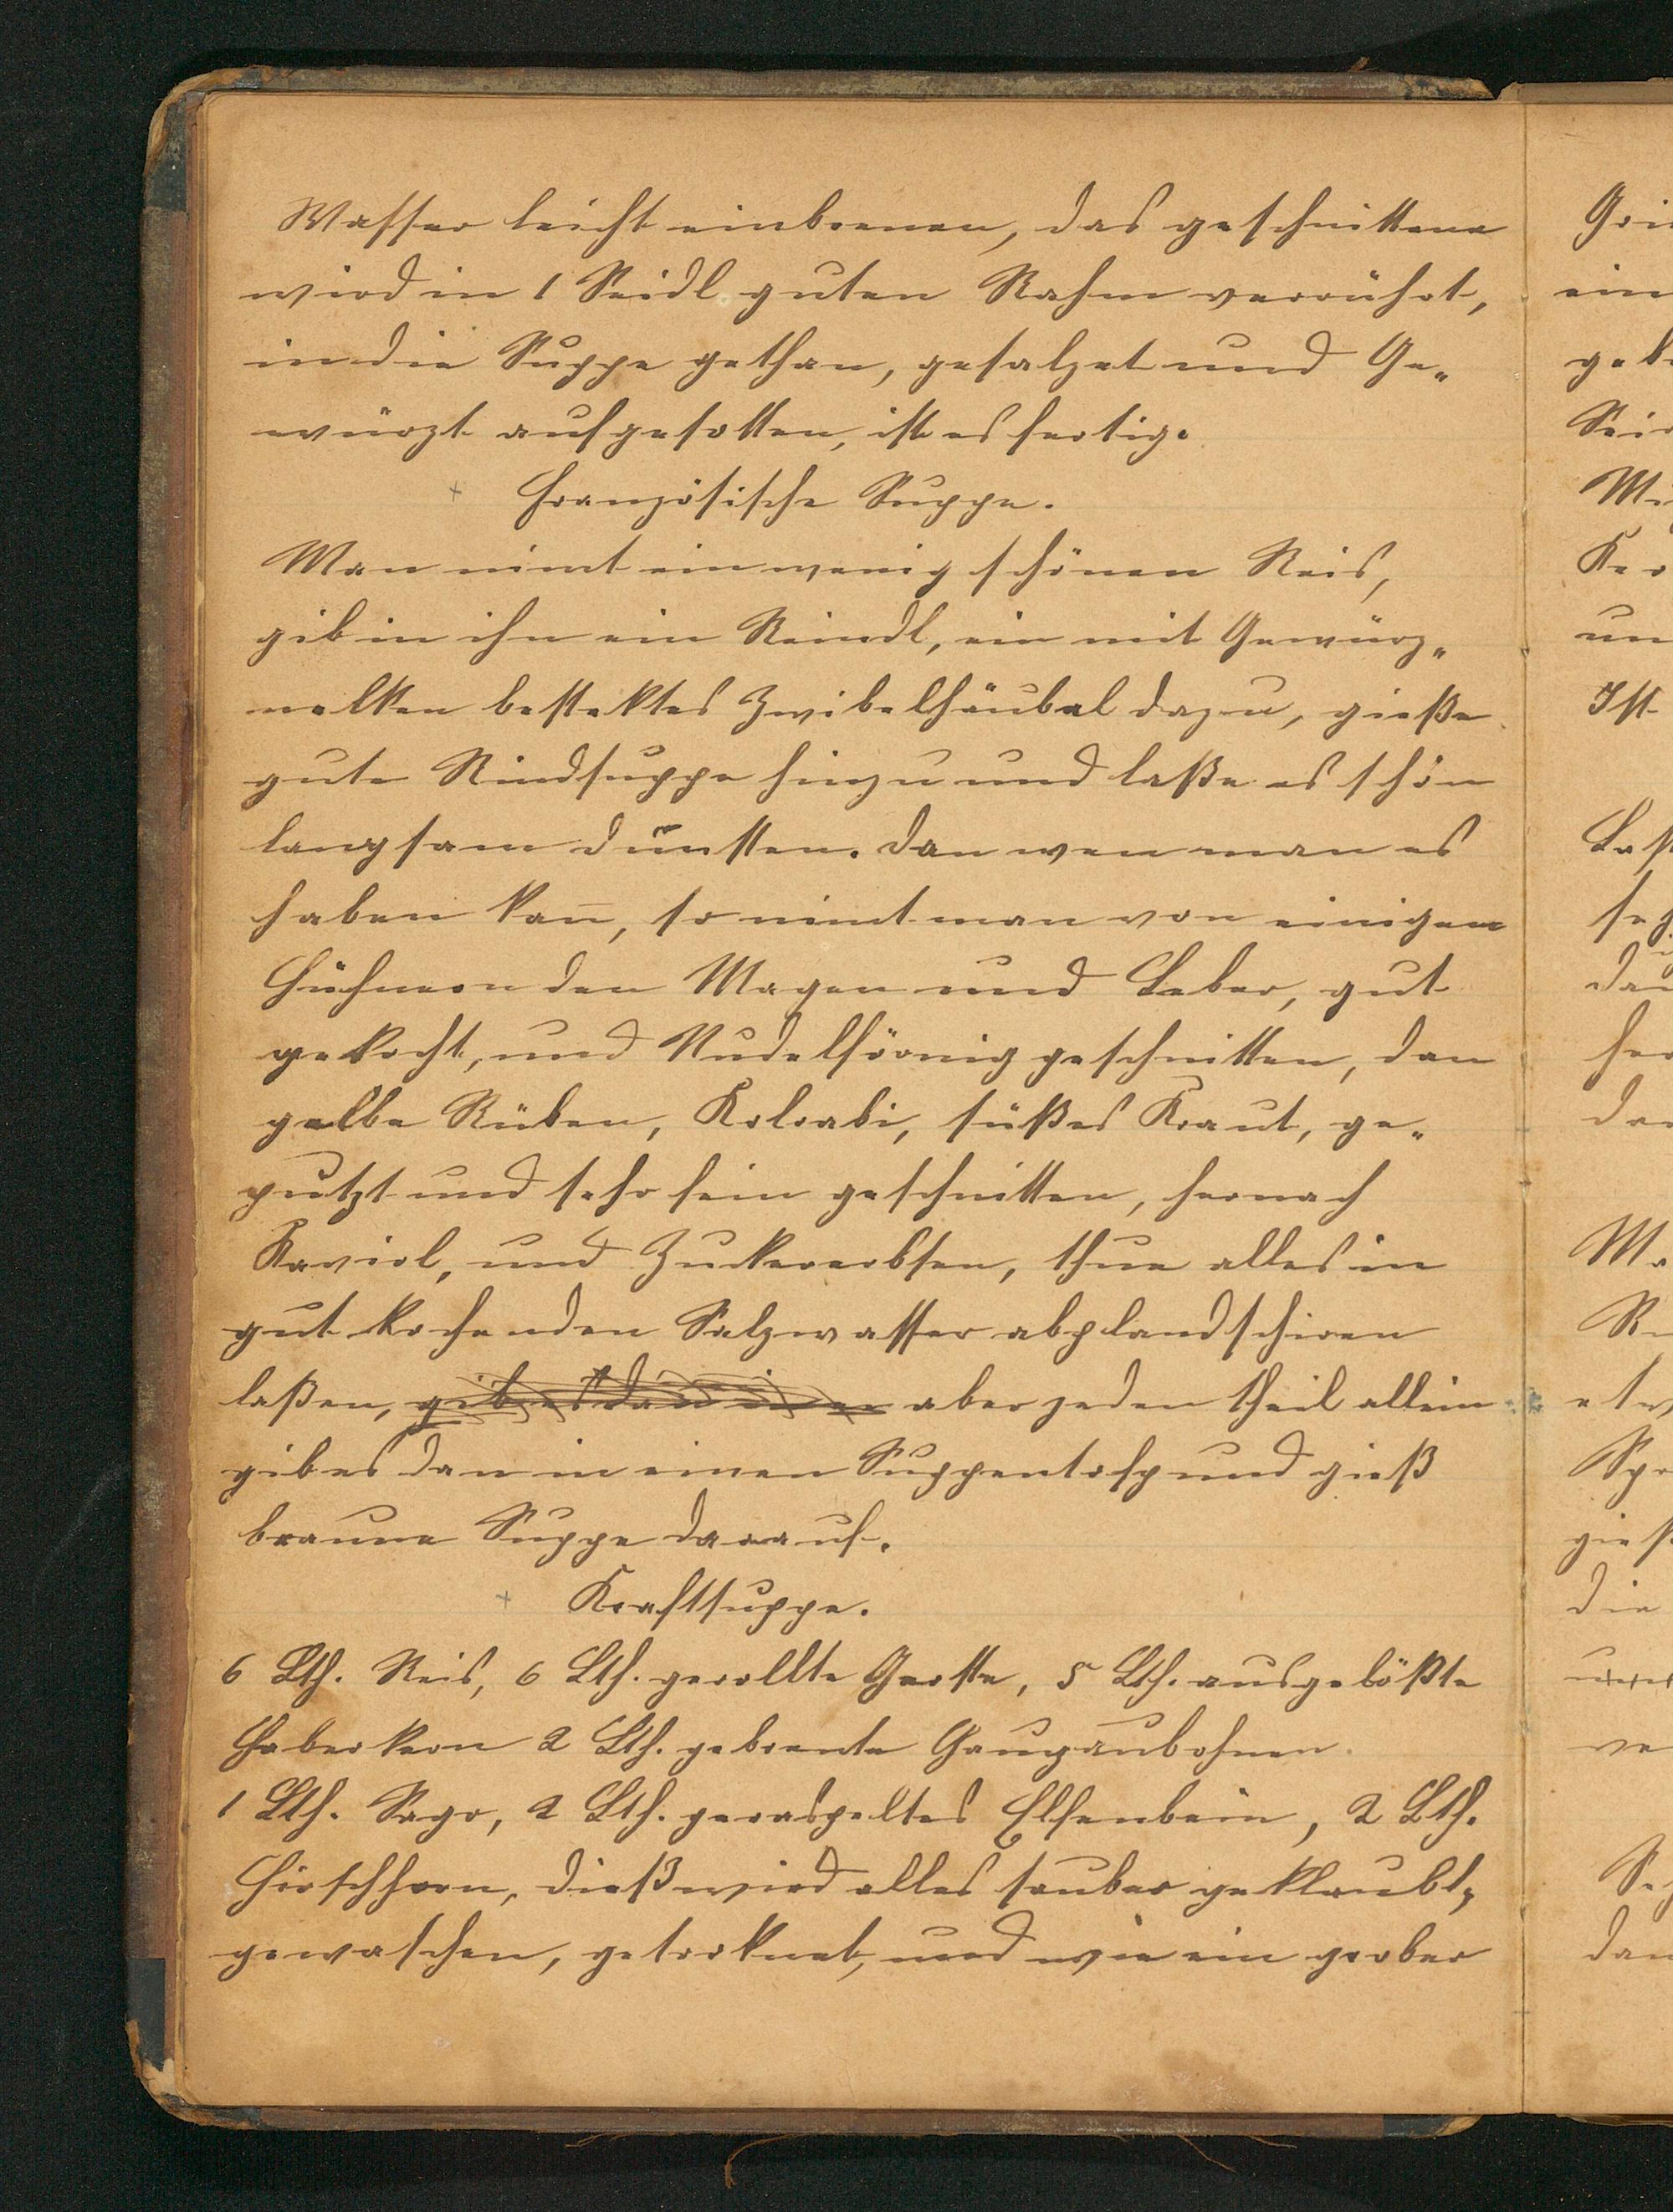 Wasser leicht einbrenen, das geschnittene
wird in 1 Seidl guten Rahm verrührt,
in die Suppe gethan, gesalzet und Ge„
würzt aufgesotten, ist es fertig.
+ Französische Suppe.
Man nimt ein wenig schönen Reis,
gib in ihn ein Reindl, ein mit Gewürz„
nelken bestektes Zwibelhäubel dazu, gieße
gute Rindsuppe hinzu und laße es schön
langsam dünsten. Dan wen man es
haben kan̅, so nimt man von einigen
Hühnern den Magen und Leber, gut
gekocht, und Nudelförmig geschnitten, dan
gelbe Rüben, Kolrabi, süßes Kraut, ge„
putzt und sehr fein geschnitten, hernach
Kaviol, und Zukererbsen, thue alles in
gut kochenden Salzwasser abplandschiren
laßen, gib es dan in aber jeden theil allein
gib es dan in einen Suppentopf und gieß
braune Suppe darauf.
+ Kraftsuppe.
6 Lth. Reis, 6 Lth. gerollte Gerste, 5 Lth. ausgelößte
Haberkern 2 Lth. gebrente Gaugaubohnen
1 Lth. Sago, 2 Lth. geraspeltes Elfenbein, 2 Lth.
Hirschhorn, dieß wird alles sauber geklaubt,
gewaschen, getroknet, und wie ein grober